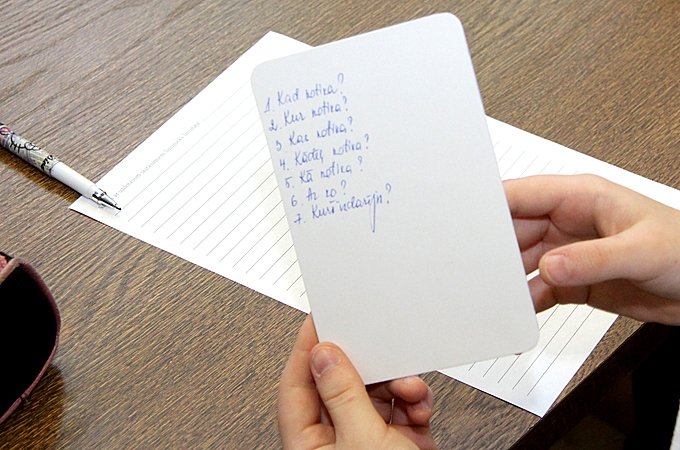 1. Kad notika?
2. Kur notika?
3 Kas notika?
4. Kādēļ notika?
5. Kā notika?
6. Ar ko?
7. Kurš izdarīja?